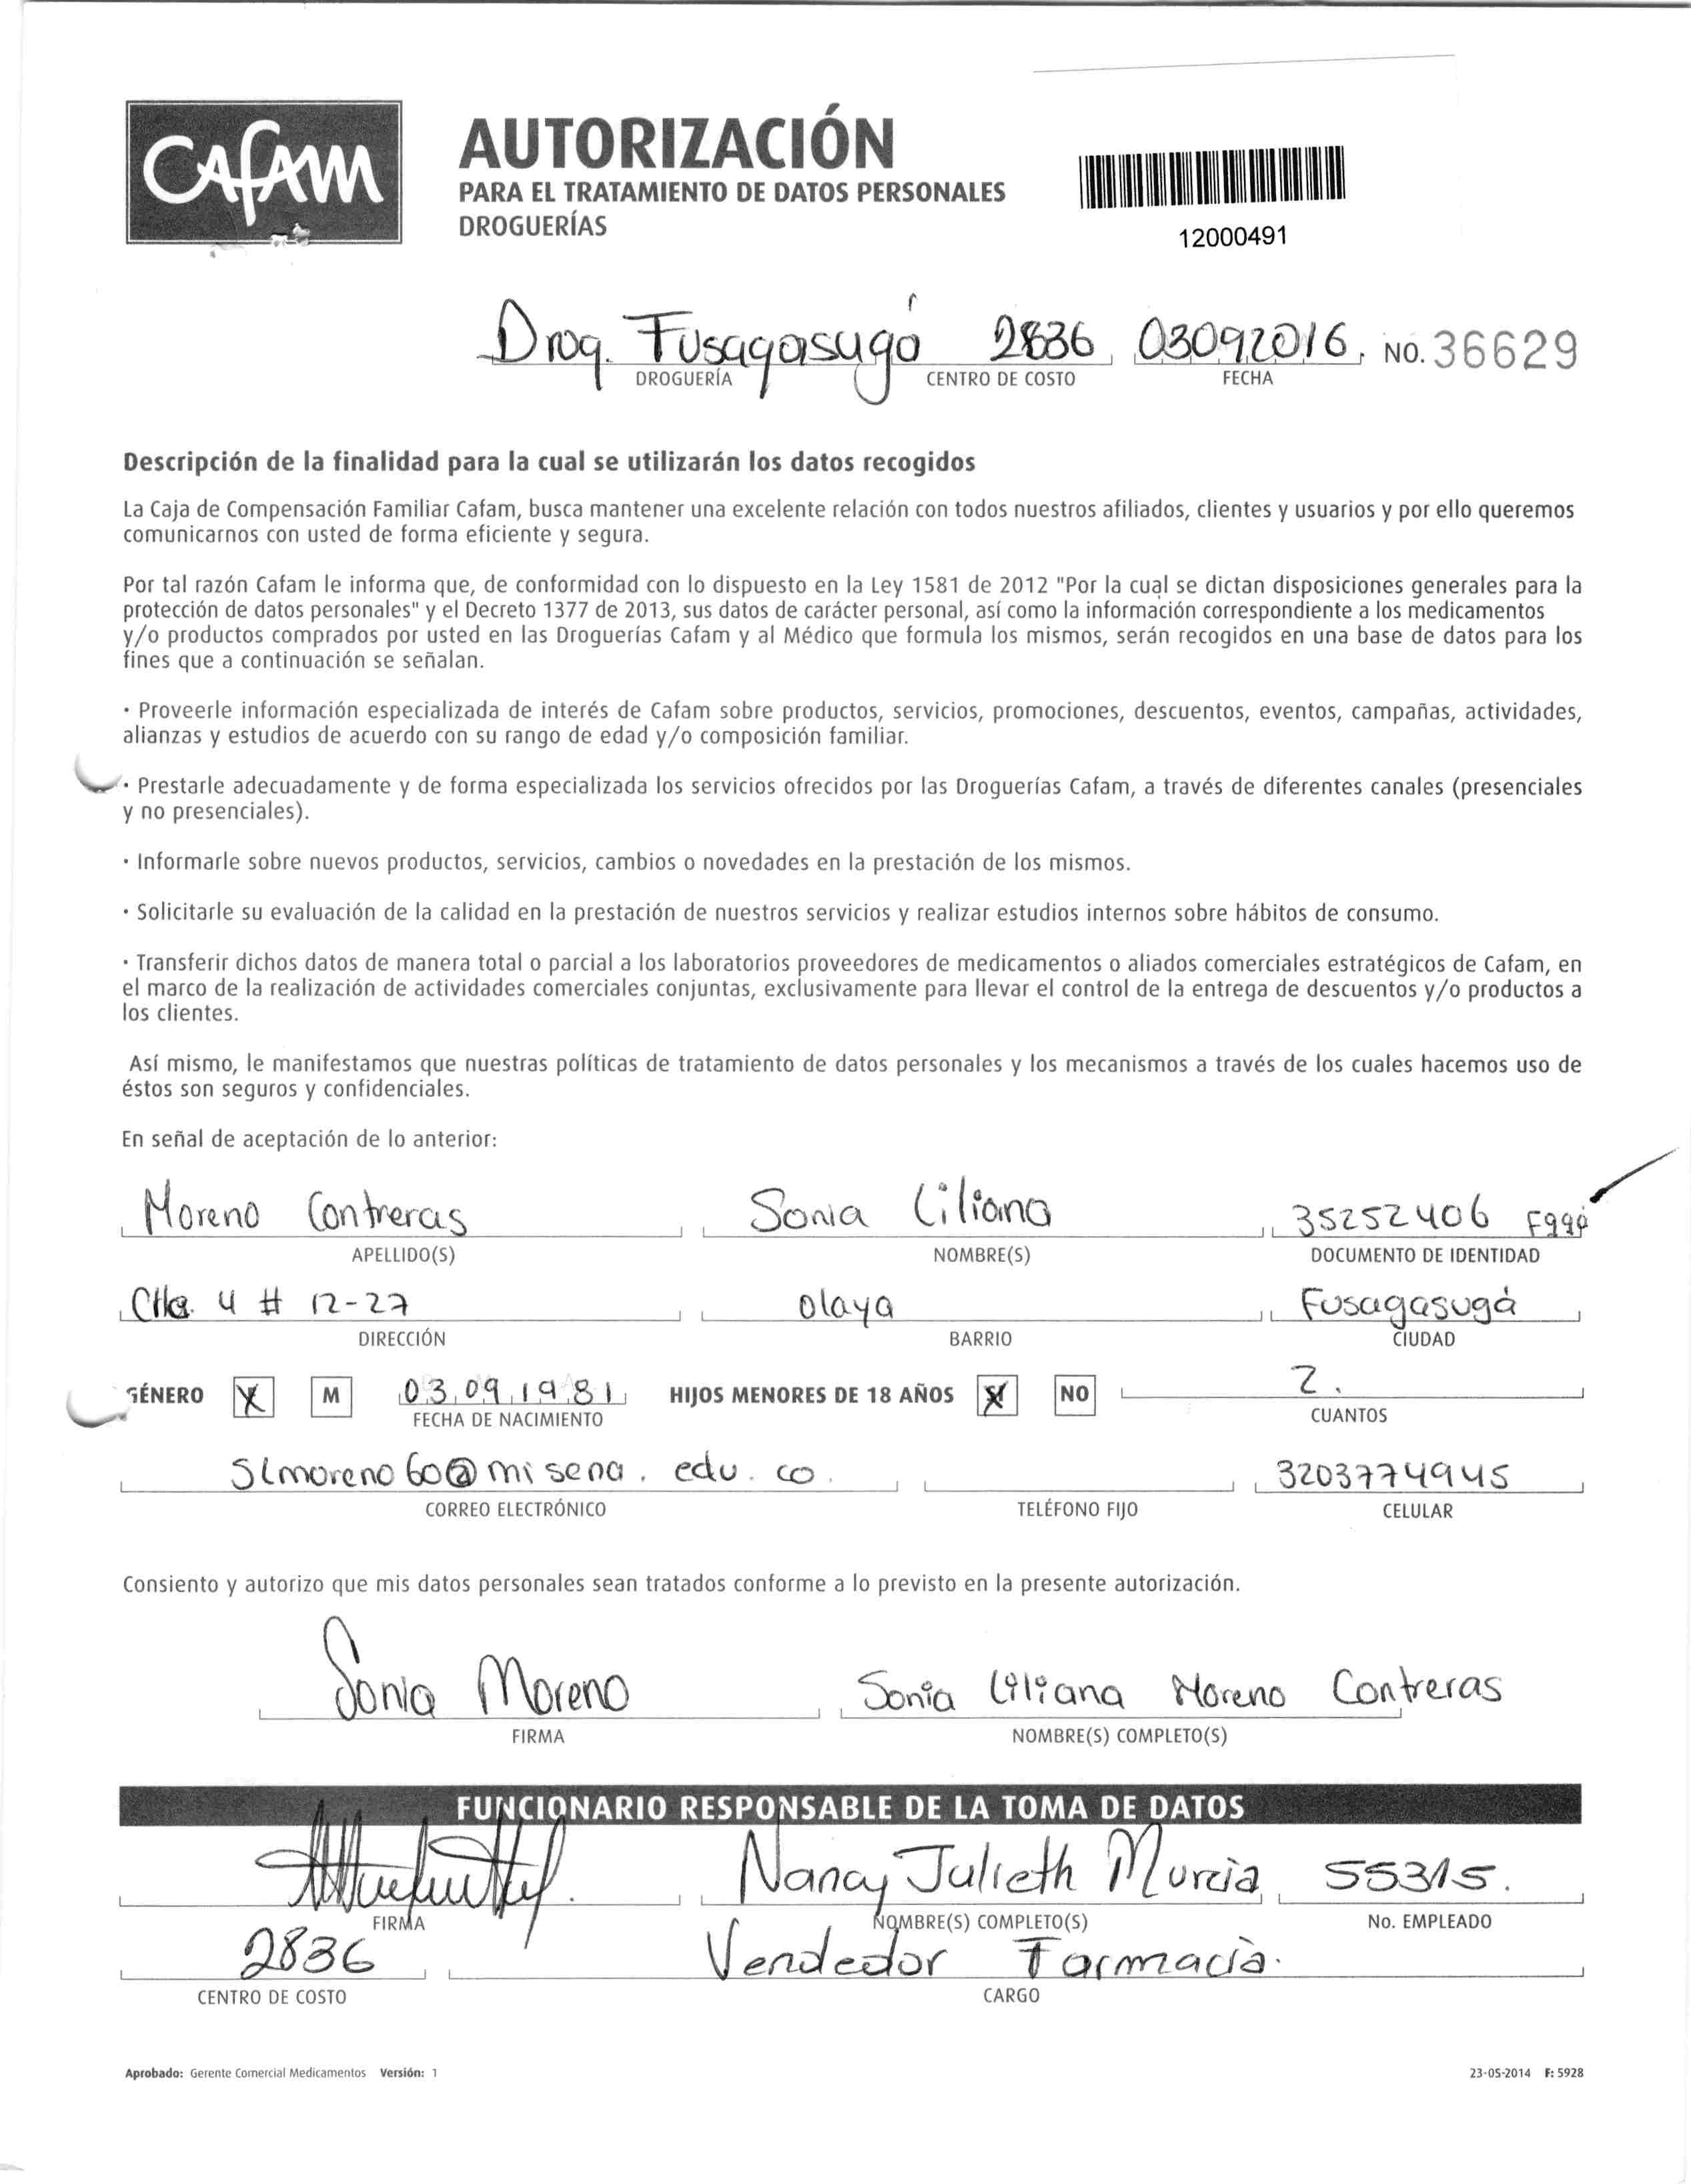 CAFAM
AUTORIZACIÓN
PARA EL TRATAMIENTO DE DATOS PERSONALES
DROGUERÍAS
12000491
Drog. Fusagasugá 2836 03092016 NO. 36629
DROGUERÍA CENTRO DE COSTO FECHA
Descripción de la finalidad para la cual se utilizarán los datos recogidos
La Caja de Compensación Familiar Cafam, busca mantener una excelente relación con todos nuestros afiliados, clientes y usuarios y por ello queremos
comunicarnos con usted de forma eficiente y segura.
Por tal razón Cafam le informa que, de conformidad con lo dispuesto en la Ley 1581 de 2012 "Por la cual se dictan disposiciones generales para la
protección de datos personales" y el Decreto 1377 de 2013, sus datos de carácter personal, así como la información correspondiente a los medicamentos
y/o productos comprados por usted en las Droguerías Cafam y al Médico que formula los mismos, serán recogidos en una base de datos para los
fines que a continuación se señalan.
· Proveerle información especializada de interés de Cafam sobre productos, servicios, promociones, descuentos, eventos, campañas, actividades,
alianzas y estudios de acuerdo con su rango de edad y/o composición familiar.
· Prestarle adecuadamente y de forma especializada los servicios ofrecidos por las Droguerías Cafam, a través de diferentes canales (presenciales
y no presenciales).
· Informarle sobre nuevos productos, servicios, cambios o novedades en la prestación de los mismos.
· Solicitarle su evaluación de la calidad en la prestación de nuestros servicios y realizar estudios internos sobre hábitos de consumo.
· Transferir dichos datos de manera total o parcial a los laboratorios proveedores de medicamentos o aliados comerciales estratégicos de Cafam, en
el marco de la realización de actividades comerciales conjuntas, exclusivamente para llevar el control de la entrega de descuentos y/o productos a
los clientes.
Así mismo, le manifestamos que nuestras políticas de tratamiento de datos personales y los mecanismos a través de los cuales hacemos uso de
éstos son seguros y confidenciales.
En señal de aceptación de lo anterior:
Moreno Contreras Sonia Liliana 35252406 Fggá
APELLIDO(S) NOMBRE(S) DOCUMENTO DE IDENTIDAD
4 # 12-27 Olaya Fusagasugá
DIRECCIÓN BARRIO CIUDAD
GÉNERO X M 03 09 1981 HIJOS MENORES DE 18 AÑOS X NO 2.
FECHA DE NACIMIENTO CUANTOS
slmoreno60@misena.edu.co. 3203774945
CORREO ELECTRÓNICO TELÉFONO FIJO CELULAR
Consiento y autorizo que mis datos personales sean tratados conforme a lo previsto en la presente autorización.
Sonia Moreno Sonia Liliana Moreno Contreras
FIRMA NOMBRE(S) COMPLETO(S)
FUNCIONARIO RESPONSABLE DE LA TOMA DE DATOS
Nancy Julieth Murcia 55315.
FIRMA NOMBRE(S) COMPLETO(S) No. EMPLEADO
2836 Vendedor Farmacia.
CENTRO DE COSTO CARGO
Aprobado: Gerente Comercial Medicamentos Versión: 1 23-05-2014 F: 5928